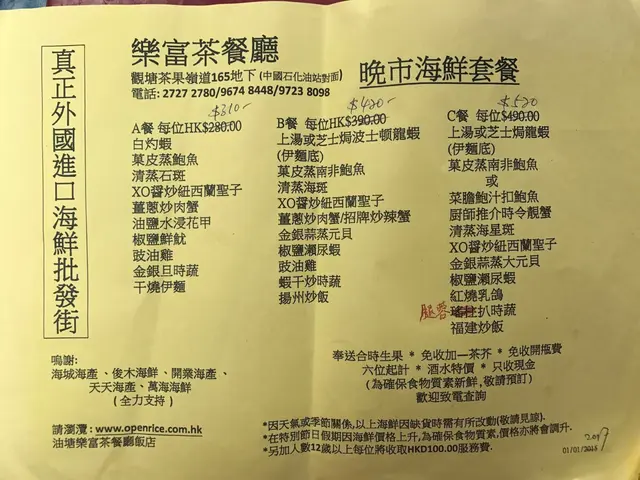 真正外國進口海鮮批發街
樂富茶餐廳
觀塘茶果嶺道165地下 (中國石化油站對面)
電話: 2727 2780/9674 8448/9723 8098
晚市海鮮套餐
$310-
A餐 每位HK$280.00
白灼蝦
菓皮蒸鮑魚
清蒸石斑
XO醬炒紐西蘭聖子
薑蔥炒肉蟹
油鹽水浸花甲
椒鹽鮮魷
豉油雞
金銀旦時蔬
干燒伊麵
$420-
B餐 每位HK$390.00
上湯或芝士焗波士頓龍蝦
(伊麵底)
菓皮蒸南非鮑魚
清蒸海斑
XO醬炒紐西蘭聖子
薑蔥炒肉蟹/招牌炒辣蟹
金銀蒜蒸元貝
椒鹽瀨尿蝦
豉油雞
蝦干炒時蔬
揚州炒飯
$520
C餐 每位$490.00
上湯或芝士焗龍蝦
(伊麵底)
菓皮蒸南非鮑魚
或
菜膽鮑汁扣鮑魚
廚師推介時令靚蟹
清蒸海星斑
XO醬炒紐西蘭聖子
金銀蒜蒸大元貝
椒鹽瀨尿蝦
紅燒乳鴿
扒時蔬
福建炒飯
嗚謝:
海城海產、俊木海鮮、開業海產、
天天海產、萬海海鮮
(全力支持)
奉送合時生果 * 免收加一茶芥 * 免收開瓶費
六位起計 * 酒水特價 * 只收現金
(為確保食物質素新鮮,敬請預訂)
歡迎致電查詢
請瀏灠: www.openrice.com.hk
油塘樂富茶餐廳飯店
*因天氣或季節關係,以上海鮮因缺貨時需有所改動(敬請見諒).
*在特別節日假期因海鮮價格上升,為確保食物質素,價格亦將會調升.
*另加人數12歲以上每位將收取HKD100.00服務費.
2017
01/01/2015